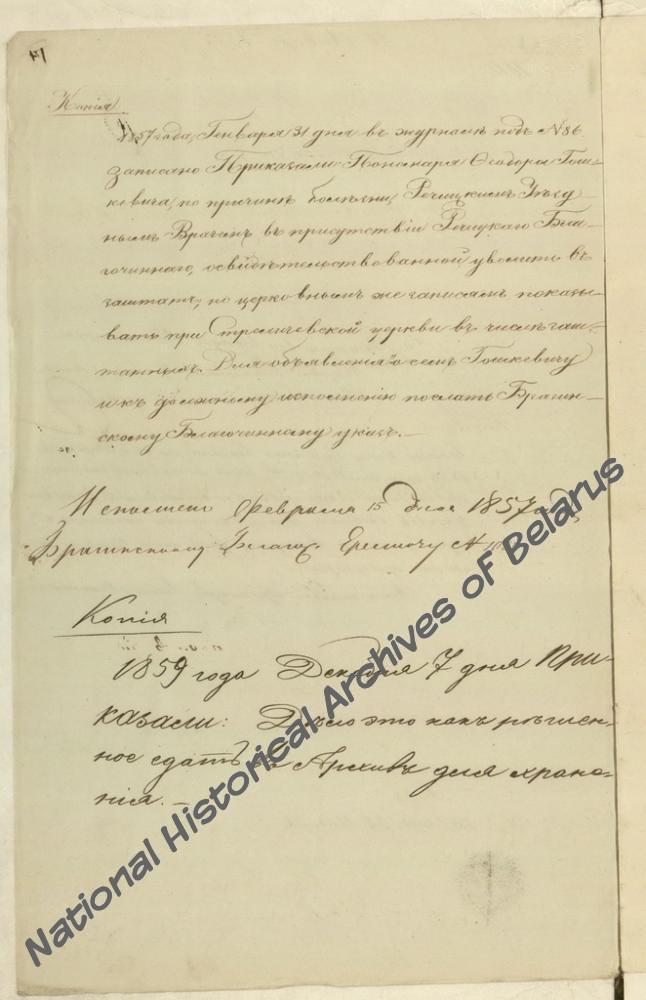 Копія
1857 года, Генваря 31 дня въ журналѣ подъ № 86
записано Приказали: Пономаря Ѳеодора Гош-
кевича, по причинѣ болѣзни, Рѣчицкимъ Уѣзд-
нымъ Врачемъ въ присутствіи Рѣчицкаго Бла-
гочиннаго, освидѣтельствованной уволить въ
заштатъ, по церковнымъ же записямъ показы-
вать при Стреличевской церкви въ числѣ заш-
татныхъ. Для объявленія о семъ Гошкевичу
и къ должному исполненію послать Брагин-
скому Благочинному указъ.—
Исполнено Февраля 15 дня 1857 года
Брагинскому Благоч. Еремичу №
Копія
1859 года Декабря 7 дня При-
казали: Дѣло это какъ рѣшен-
ное сдать въ Архивъ для хране-
нія.—
National Historical Archives of Belarus